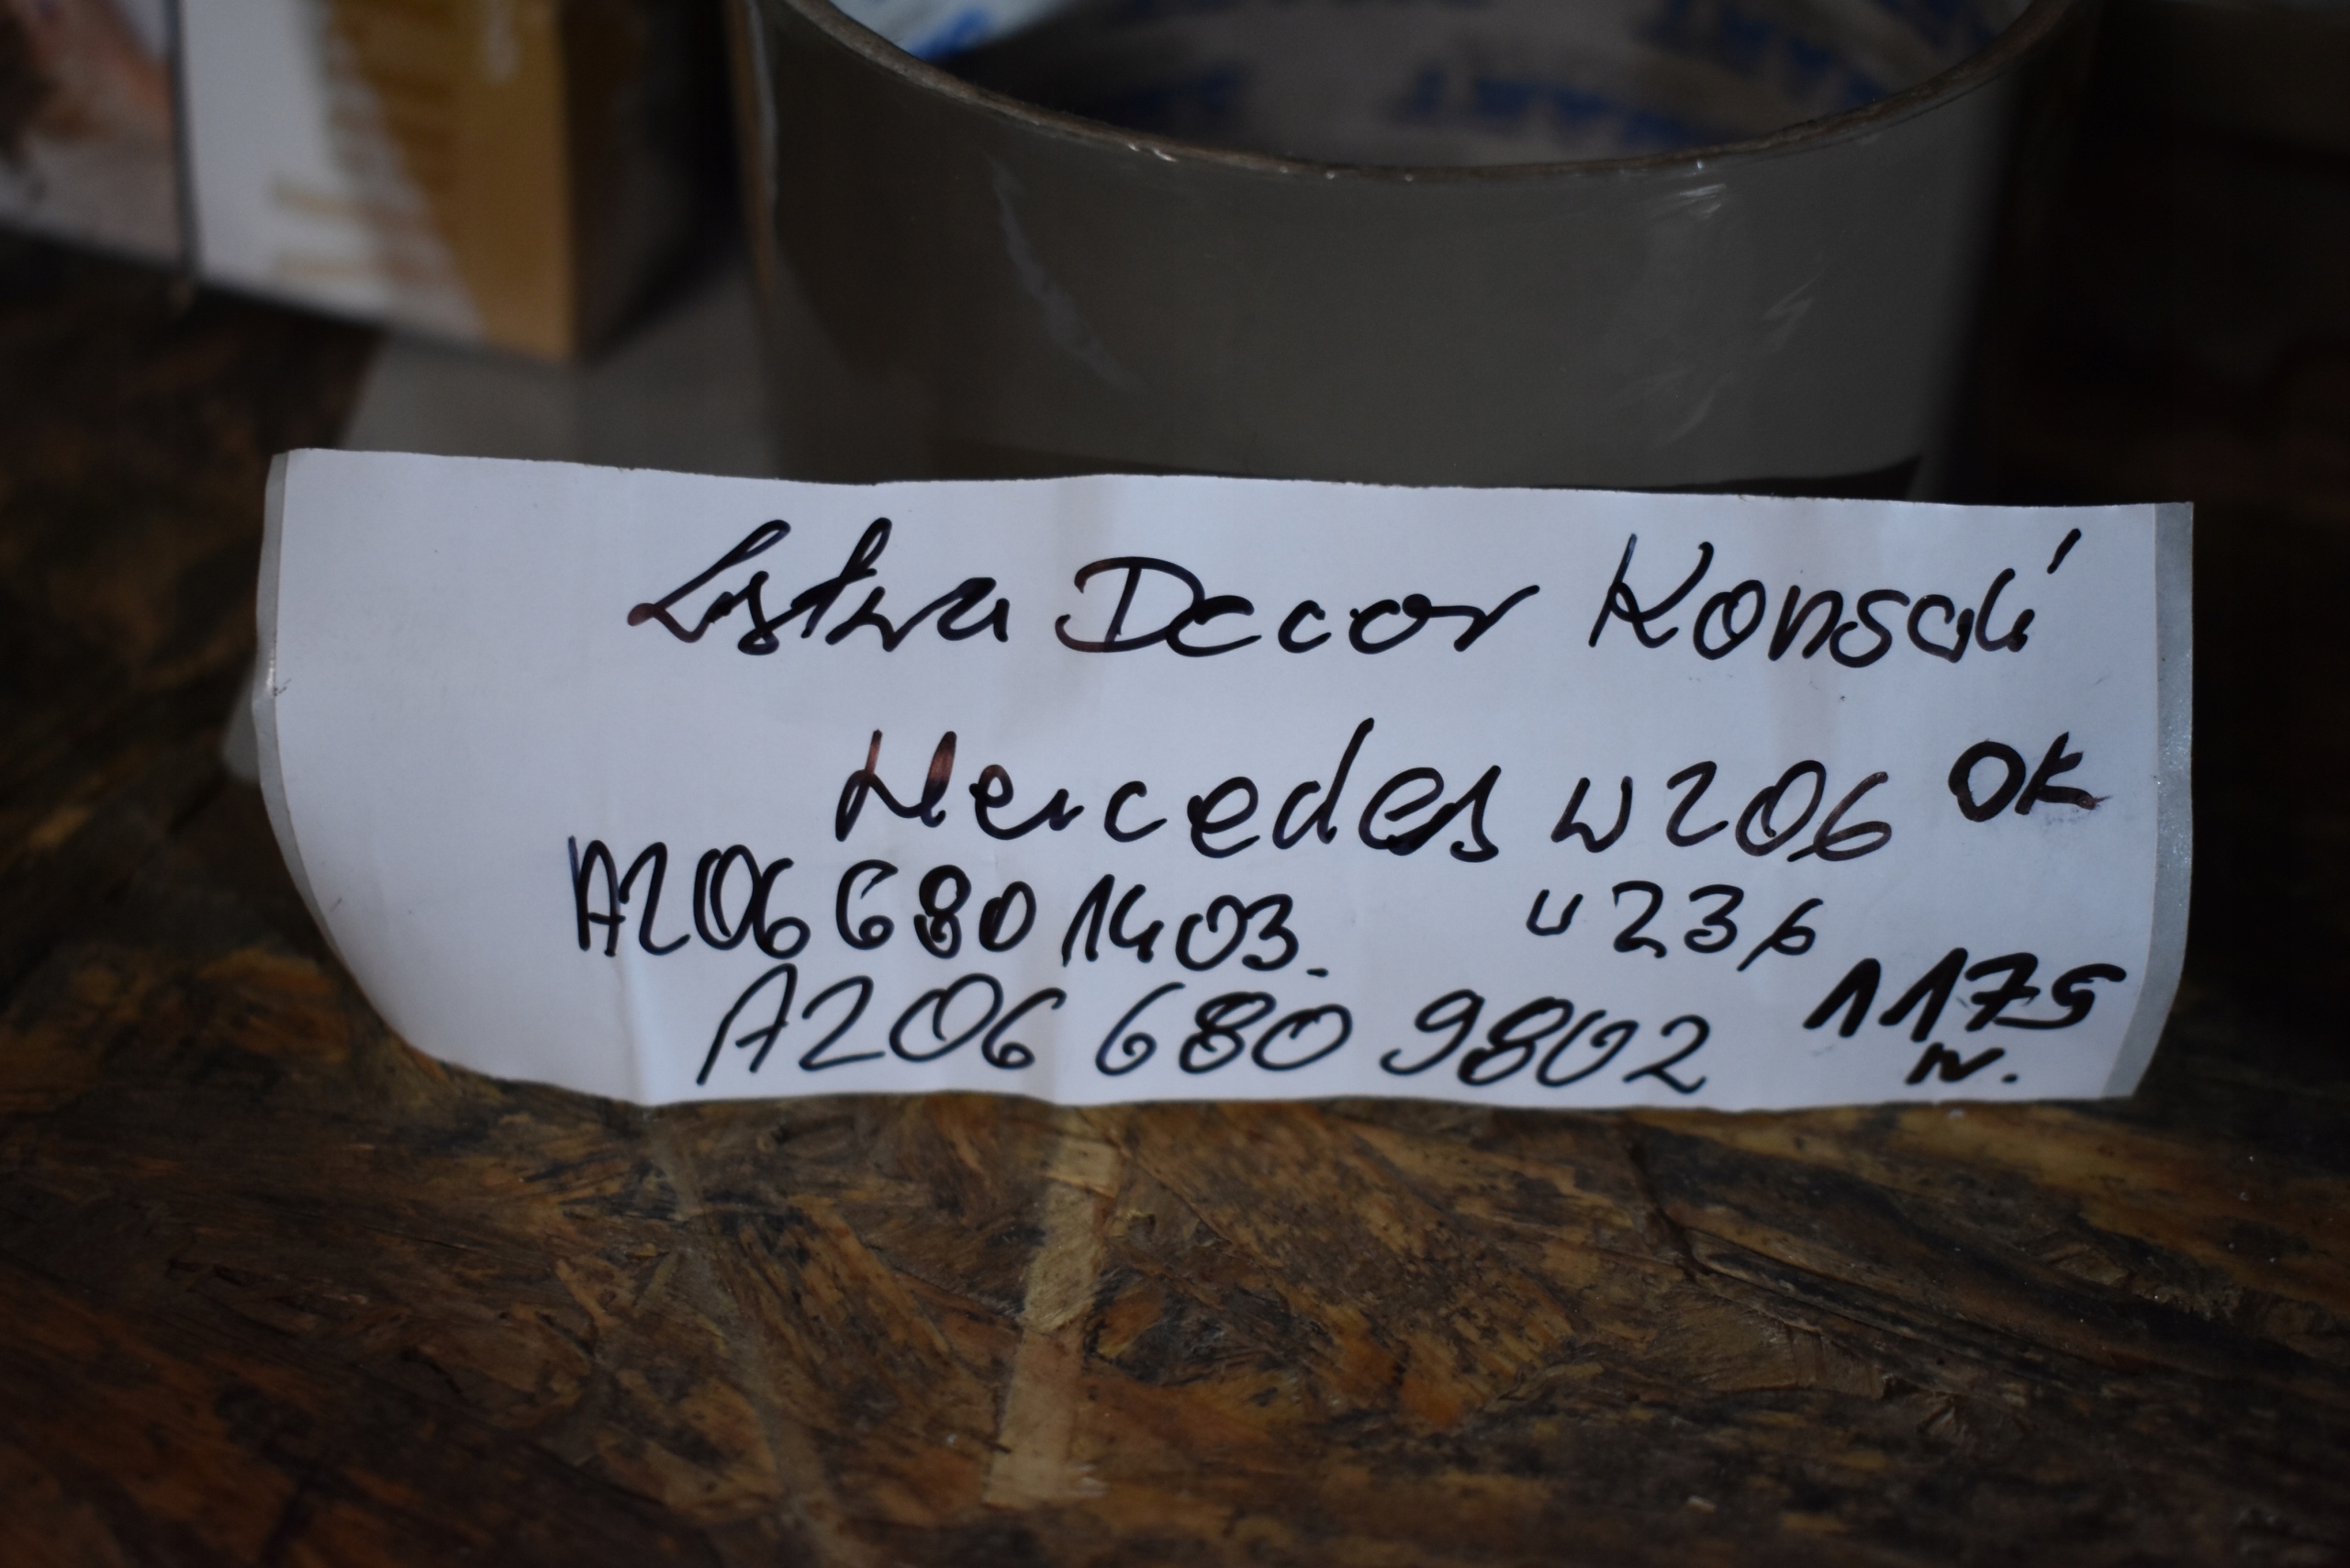 Listwa Decor Konsoli
Mercedes W206 OK
A206 680 1403. W236
A206 680 9802 1175
N.